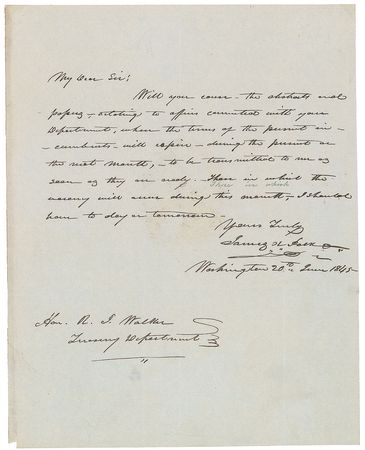 My Dear Sir:
Will you cause – the abstracts and
papers – relating to offices connected with your
Department, where the terms of the present in-
-cumbents – will expire – during the present or
the next month, – to be transmitted to me as
soon as they are ready. Those in which the
Those in which
vacancy will occur during this month, – I should
have to day or tomorrow –
Yours Truly
James K. Polk
Washington 20th June 1845
Hon. R. J. Walker
Treasury Department